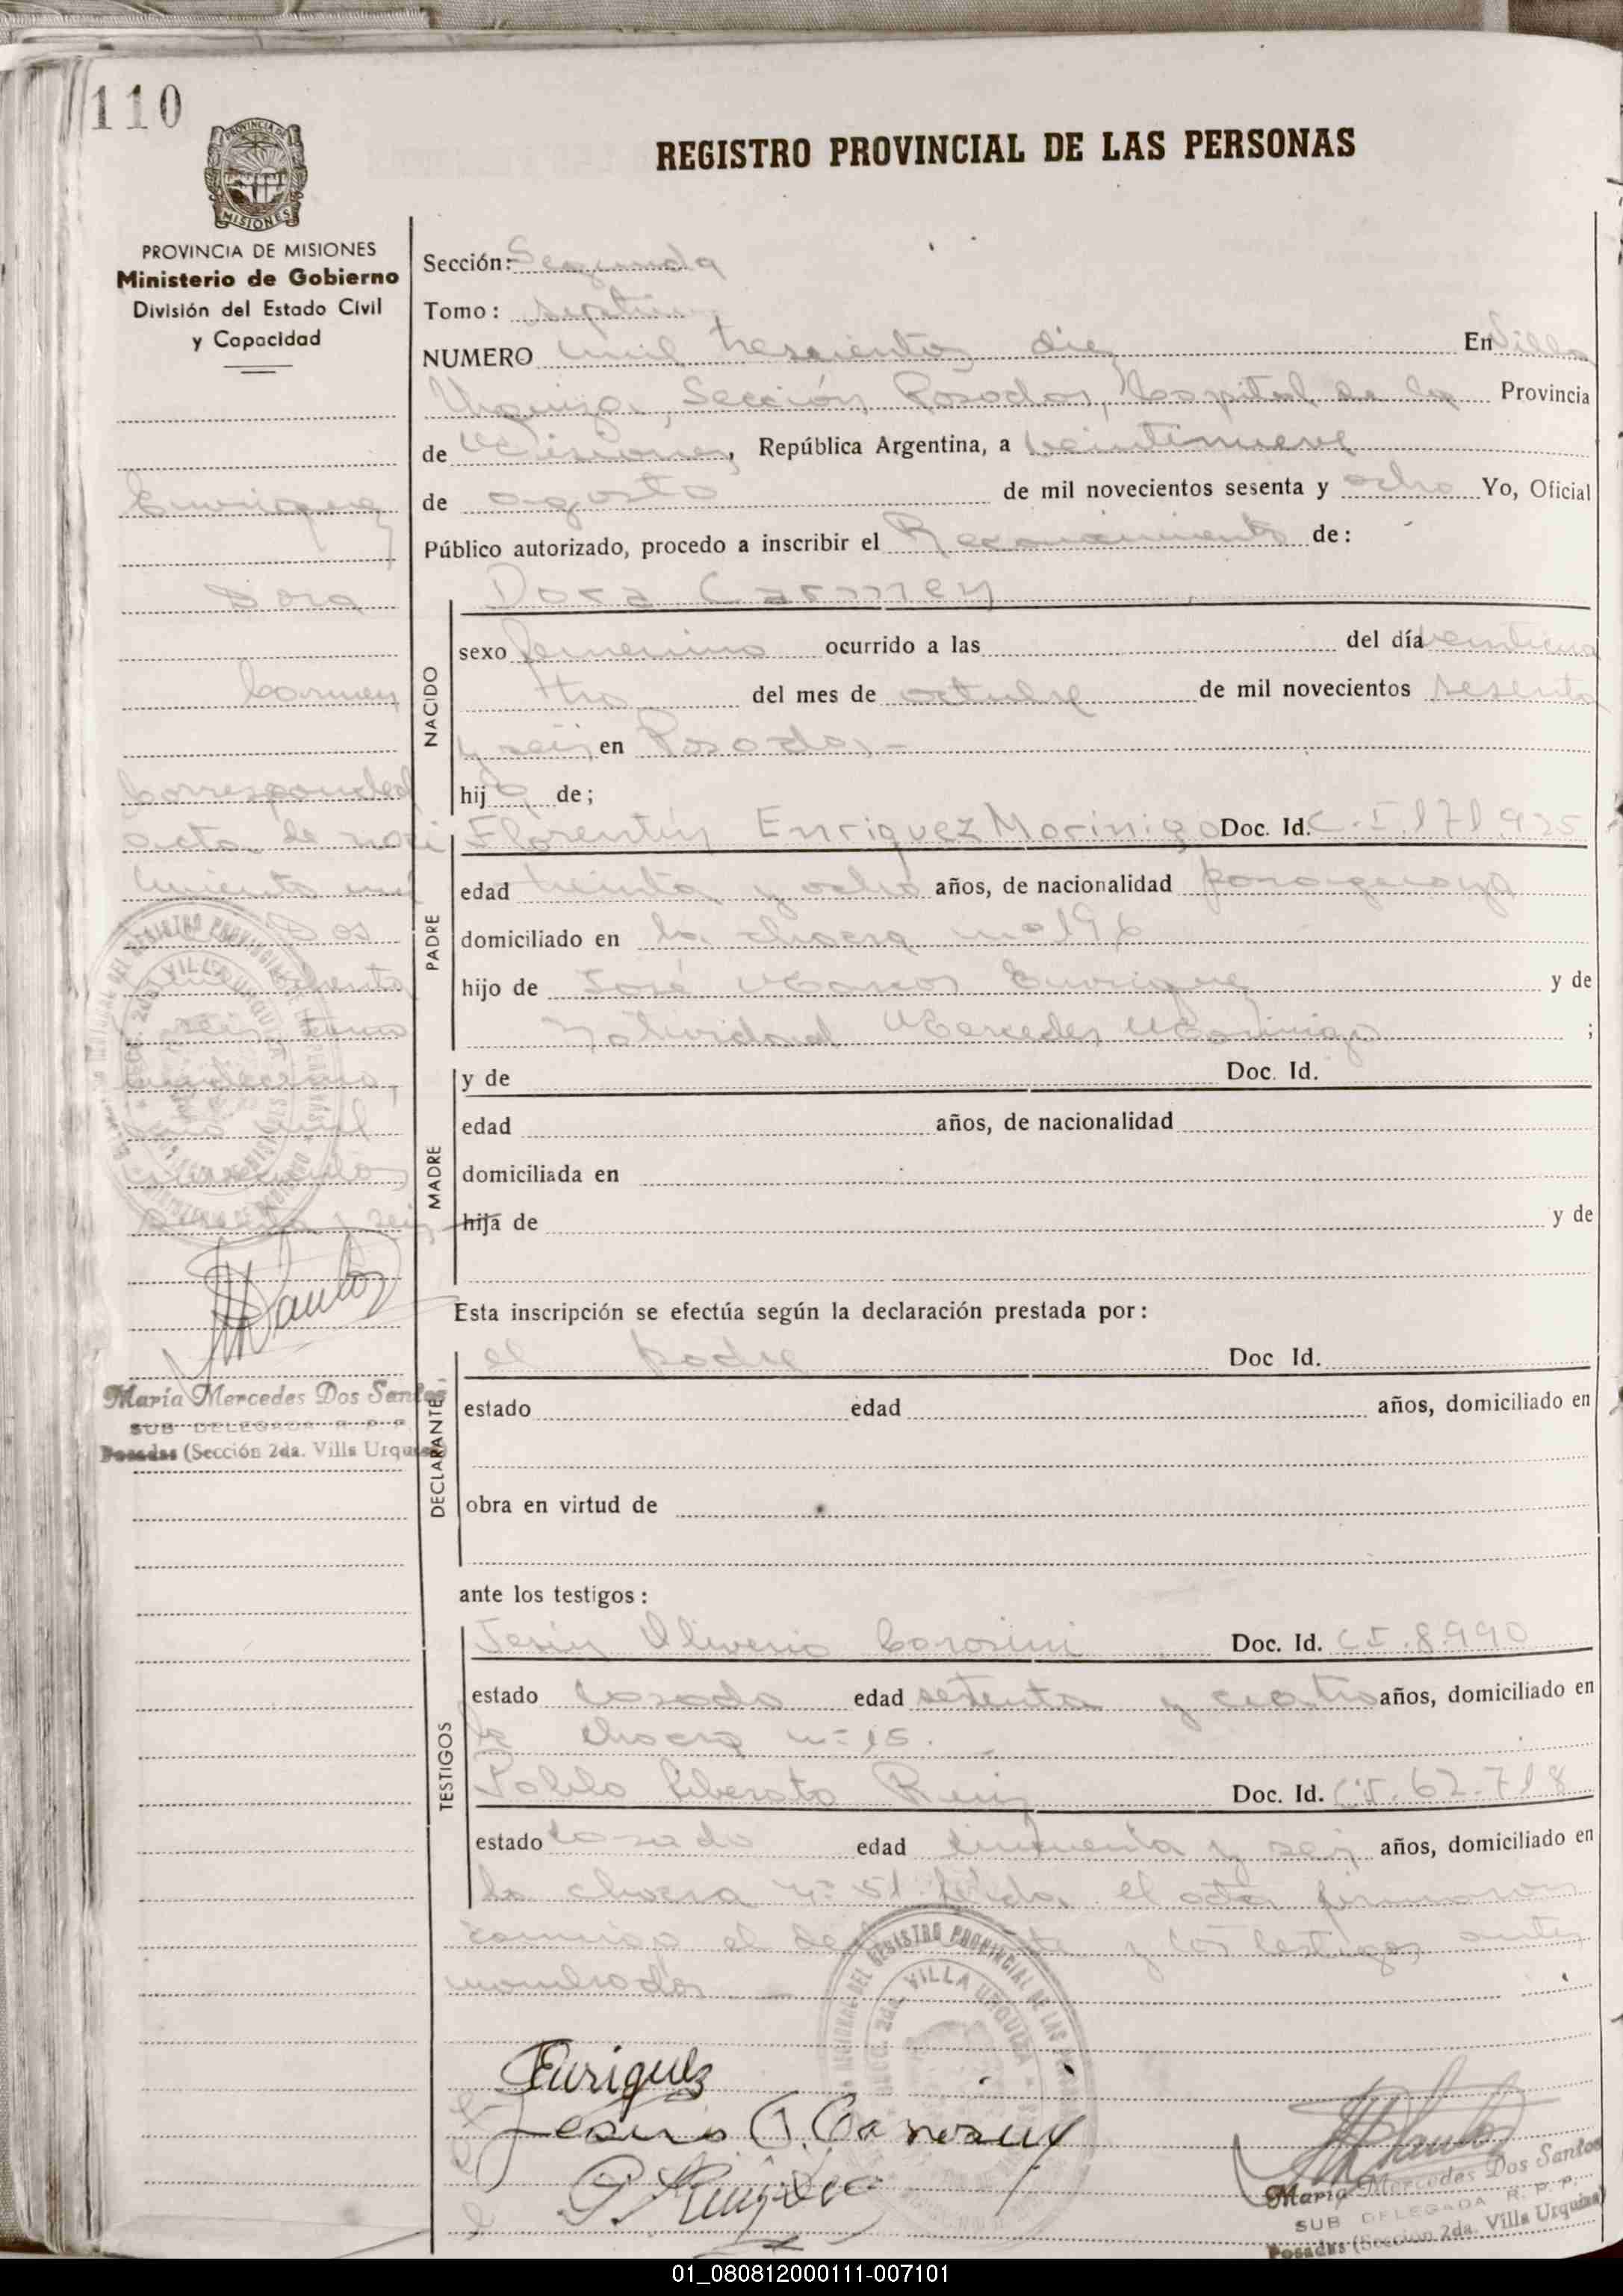 110
REGISTRO PROVINCIAL DE LAS PERSONAS
PROVINCIA DE MISIONES
Ministerio de Gobierno
División del Estado Civil
y Capacidad
Enriquez
Dora
Carmen
Corresponde
acta de naci
miento mil
Dos
seis tomo
undecimo,
año mil
novecientos
sesenta y seis
María Mercedes Dos Santos
SUB DELEGADA R. P. P.
Posadas (Sección 2da. Villa Urquiza)
Sección: Segunda
Tomo: septimo
NUMERO mil trescientos diez En Villa
Urquiza, Sección Posadas, Capital de la Provincia
de Misiones, República Argentina, a veintinueve
de agosto de mil novecientos sesenta y ocho Yo, Oficial
Público autorizado, procedo a inscribir el Reconocimiento de:
Dora Carmen
NACIDO
sexo femenino ocurrido a las del día veinticua
tro del mes de octubre de mil novecientos sesenta
y seis en Posadas-
hija de;
PADRE
Florentín Enriquez Morinigo Doc. Id. C.I. 171.925
edad treinta y ocho años, de nacionalidad paraguaya
domiciliado en la chacra nº 196
hijo de José Marcos Enriquez y de
Natividad Mercedes Morinigo ;
MADRE
y de Doc. Id.
edad años, de nacionalidad
domiciliada en
hija de y de
Esta inscripción se efectúa según la declaración prestada por:
DECLARANTE
el padre Doc Id.
estado edad años, domiciliado en
obra en virtud de
ante los testigos:
TESTIGOS
Jesús Oliverio Doc. Id. C.I. 8.990
estado casado edad setenta y cuatro años, domiciliado en
la chacra nº 15.
Pablo Liberato Ruiz Doc. Id. C.I. 62.718
estado casado edad cincuenta y seis años, domiciliado en
la chacra nº 51. Leída el acta firmaron
conmigo el declarante y los testigos antes
nombrados.
Enriquez
Jesús O.
P. Ruiz
María Mercedes Dos Santos
SUB DELEGADA R. P. P.
Posadas (Sección 2da. Villa Urquiza)
01_080812000111-007101